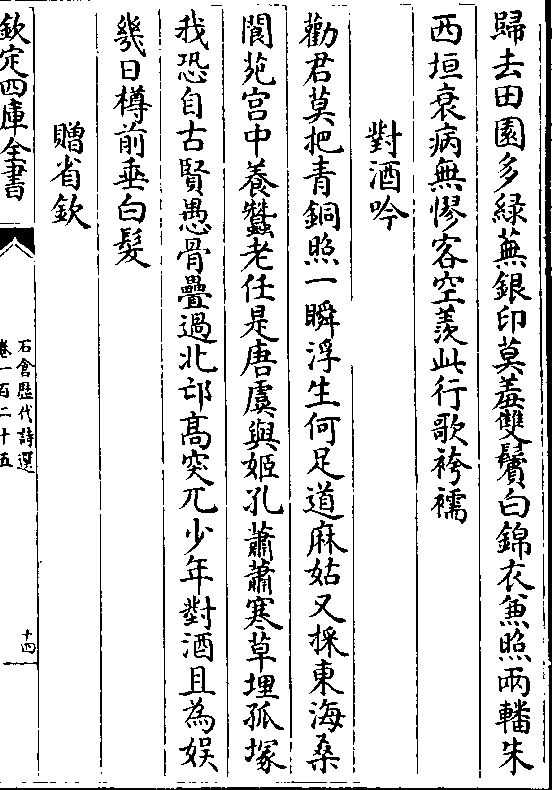 歸去田園多緑蕪銀印莫羞雙鬢白錦衣兼照兩轓朱
西垣衰病無憀客空羨此行歌袴襦
對酒吟
勸君莫把青銅照一瞬浮生何足道麻姑又採東海桑
閬苑宫中養蠶老任是唐虞與姬孔蕭蕭寒草埋孤塚
我恐自古賢愚骨疊過北邙髙突兀少年對酒且為娱
幾日樽前垂白髮
贈省欽
欽定四庫全書
石倉歴代詩選
卷一百二十五
十四